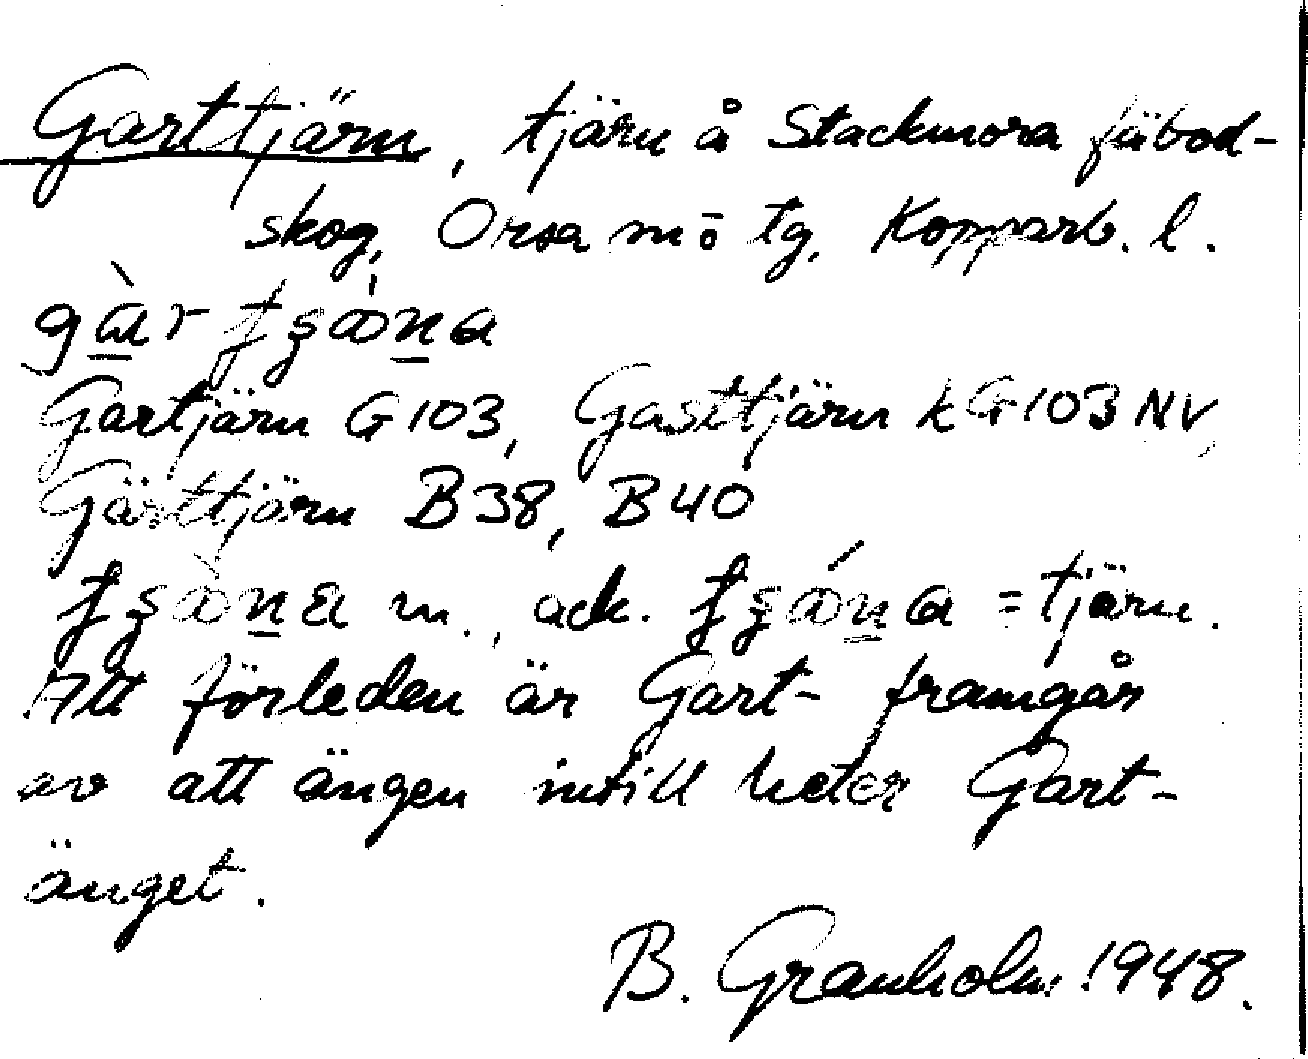 Garttjärn, tjärn å Stackmora fäbod-
skog, Orsa m o tg, Kopparb. l.
Gartjärn G 103, Gasttjärn k G 103 NV,
Gärttjärn B 38, B 40
m., ack. = tjärn.
Att förleden är Gart- framgår
av att ängen intill heter Gart-
änget.
B. Granholm 1948.